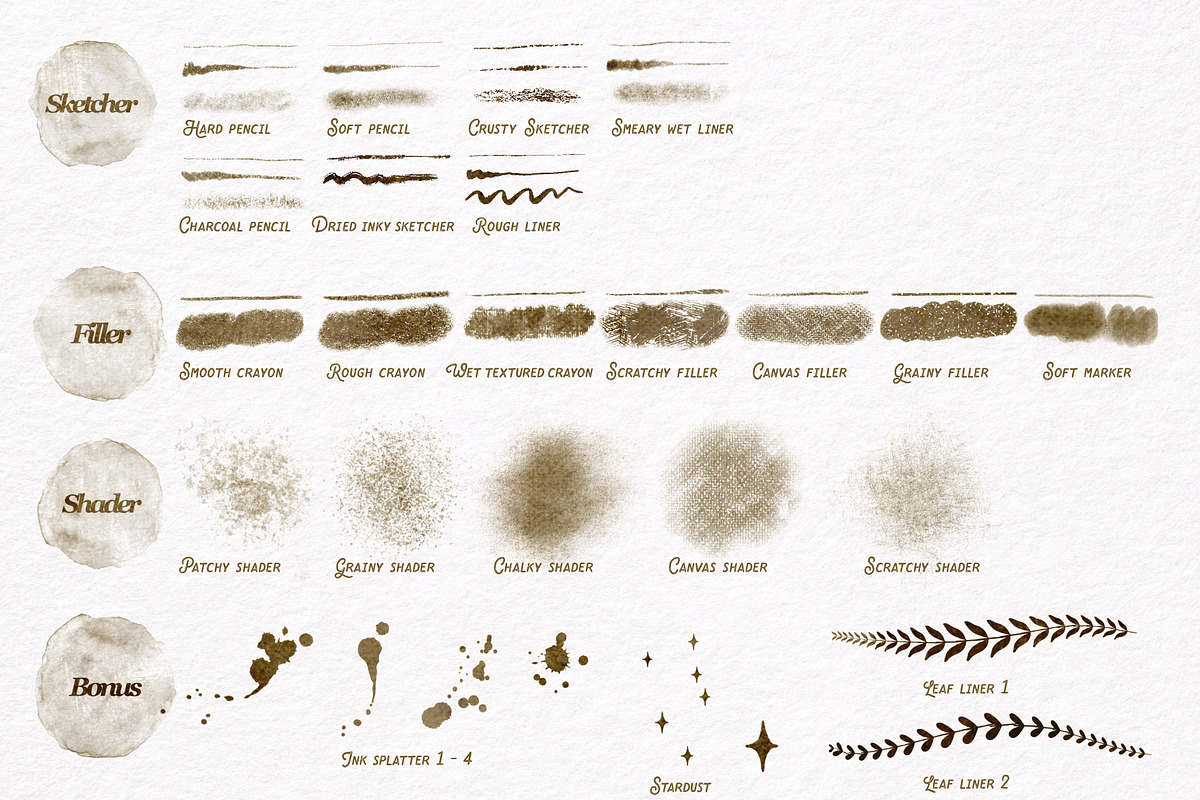 Sketcher
Hard pencil
Soft pencil
Crusty Sketcher
Smeary wet liner
Charcoal pencil
Dried inky sketcher
Rough liner
Filler
Smooth crayon
Rough crayon
Wet textured crayon
Scratchy filler
Canvas filler
Grainy filler
Soft marker
Shader
Patchy shader
Grainy shader
Chalky shader
Canvas shader
Scratchy shader
Bonus
Ink splatter 1 - 4
Stardust
Leaf liner 1
Leaf liner 2